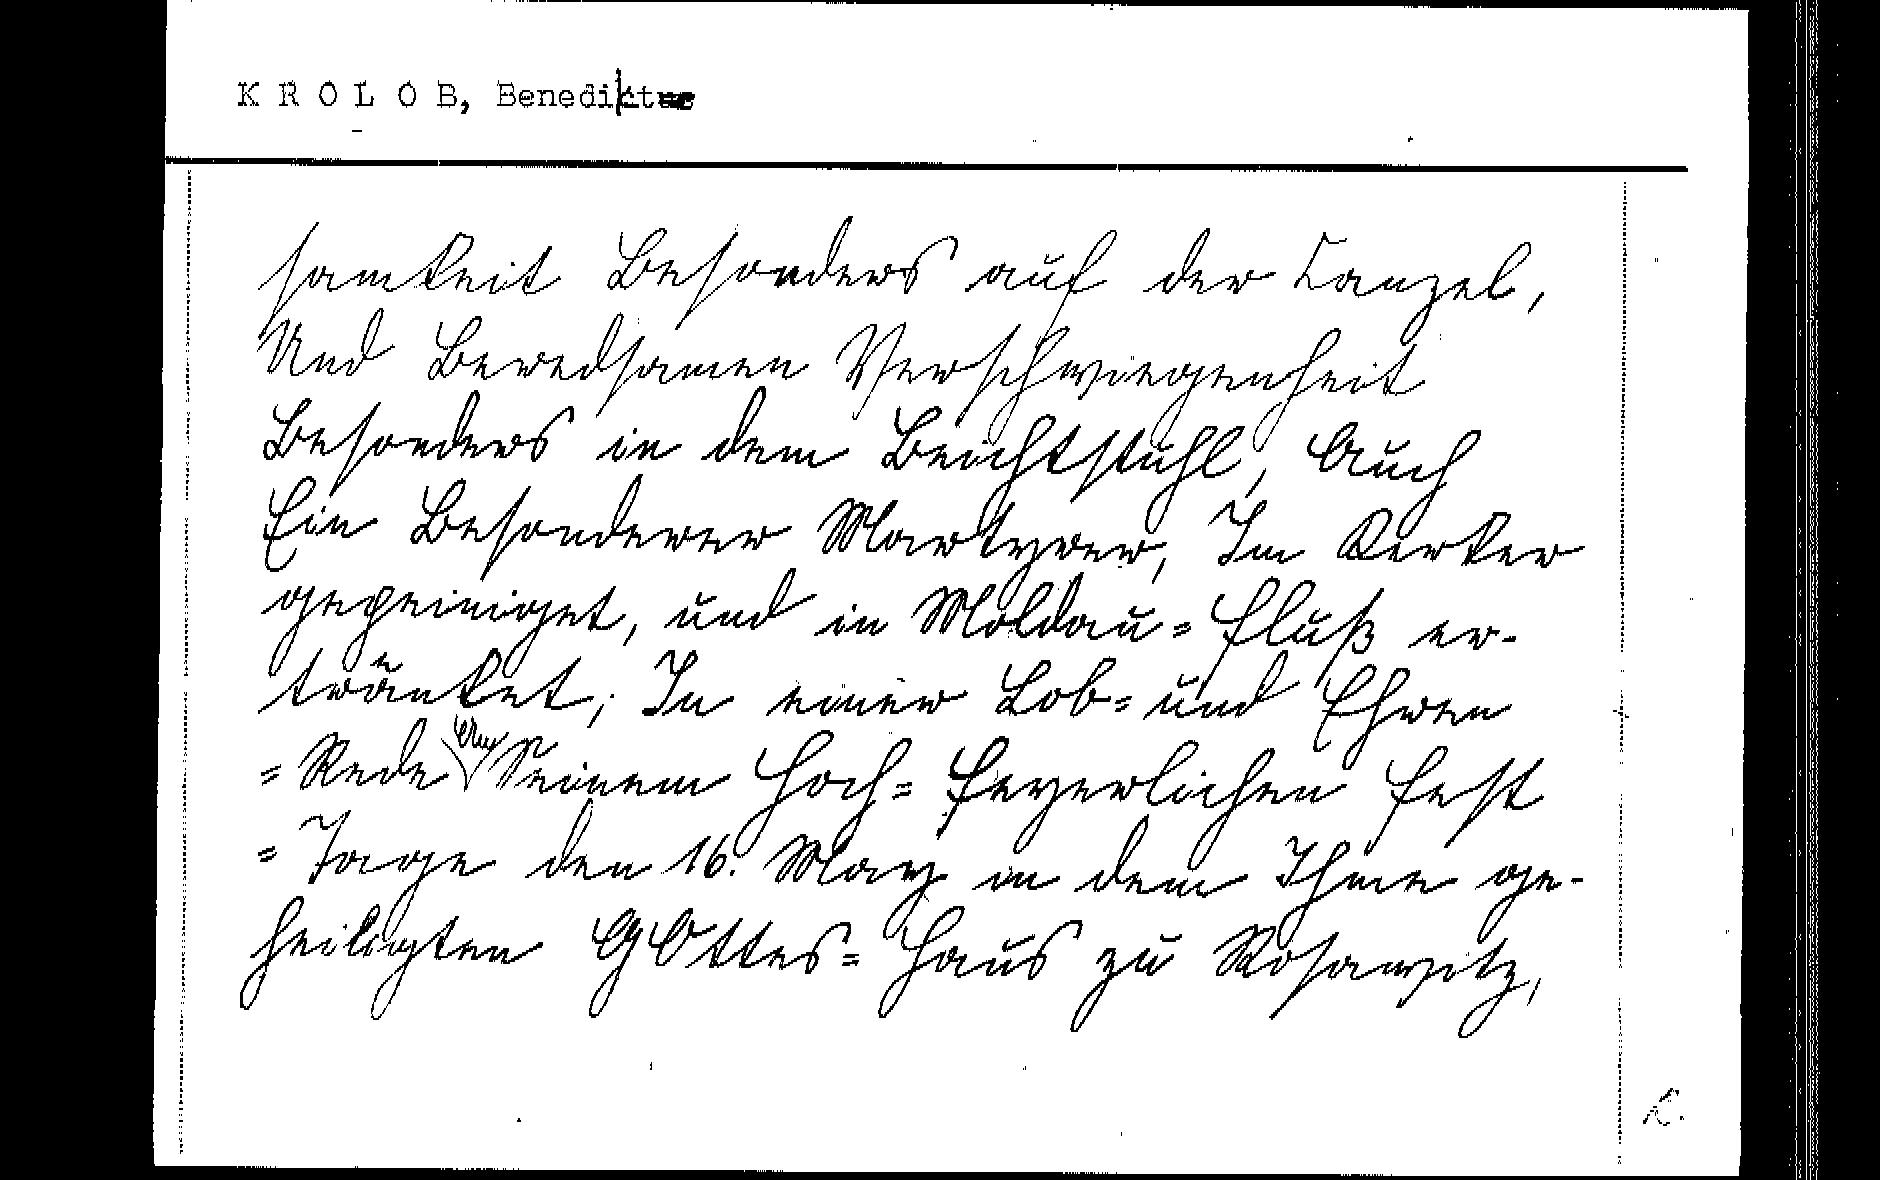 KROLOB, Benedikt
samkeit Besonders auf der Canzel,
Und Beredsamen Verschwiegenheit
Besonders in dem Beichtstuhl, Auch
Ein Besonderer Martyrer, Im Kerker
gepeiniget, und in Moldau= Fluß er-
tränket; In einer Lob= und Ehren
=Rede An Seinem Hoch= Feyerlichen Fest
=Tage den 16. May in dem Ihme ge-
heiligten GOttes= Haus zu Rosawitz,
K.